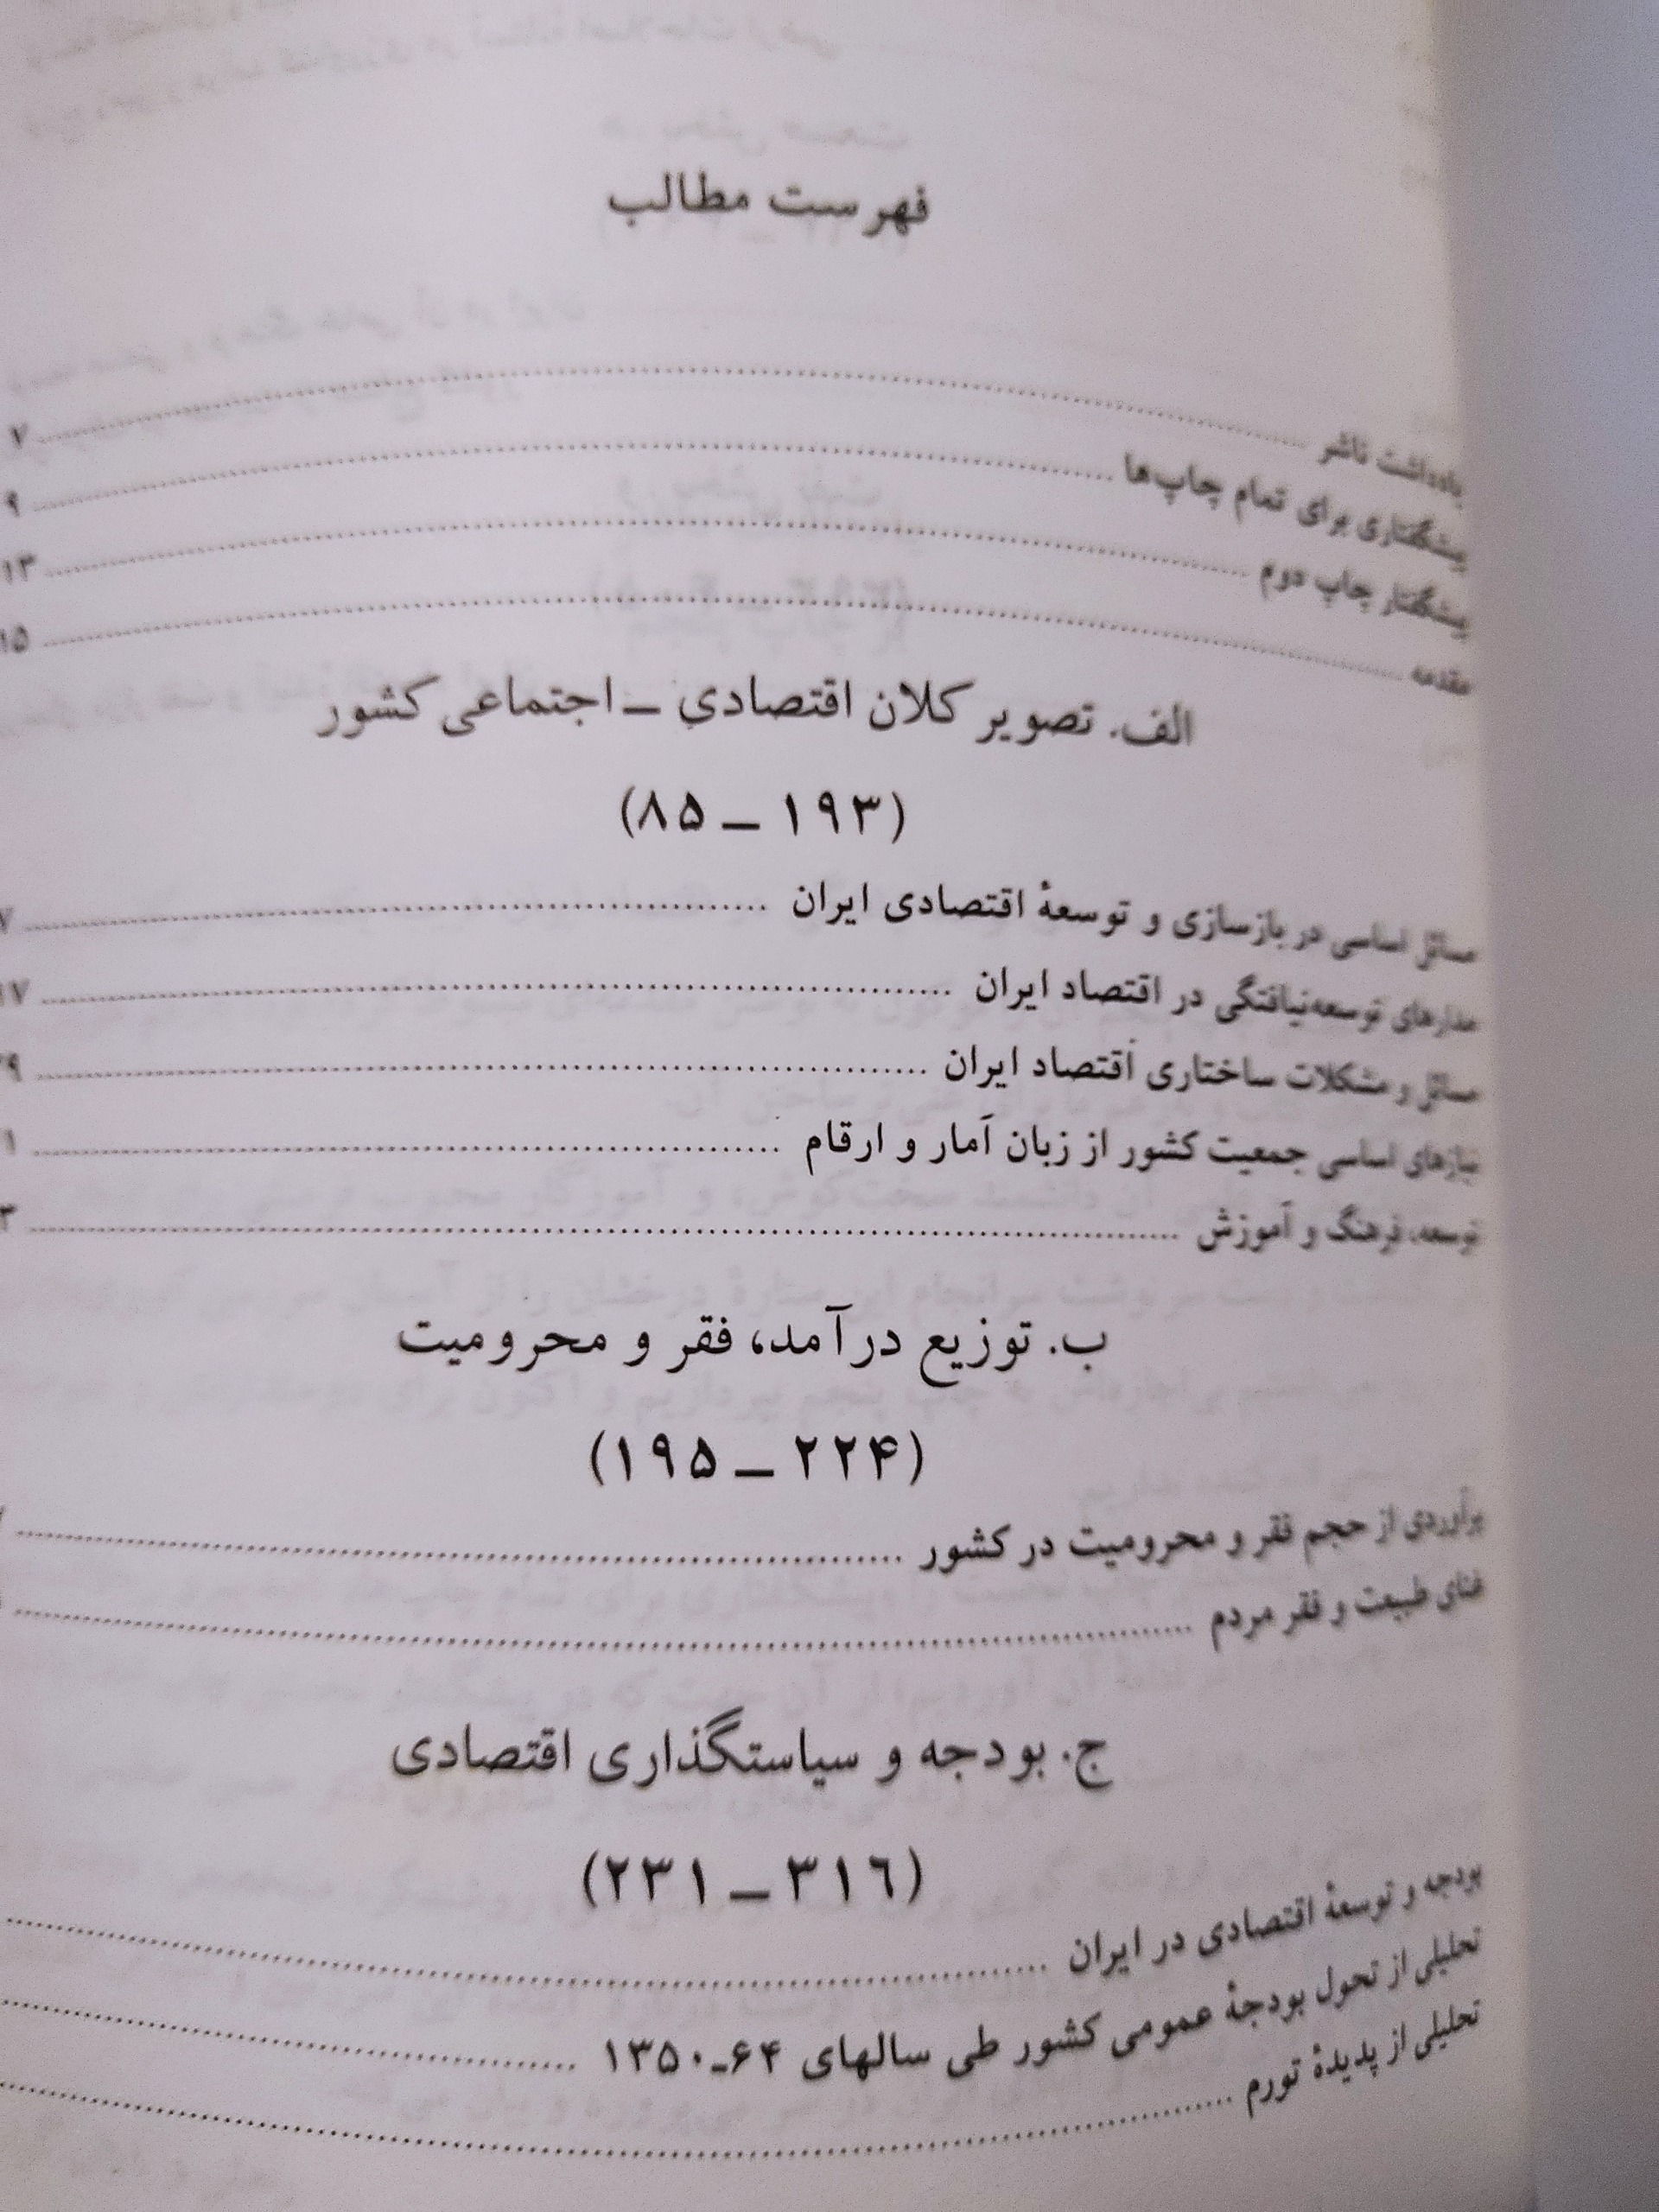 فهرست مطالب
یادداشت ناشر ۷
پیشگفتاری برای تمام چاپ‌ها ۹
پیشگفتار چاپ دوم ۱۳
مقدمه ۱۵
الف. تصویر کلان اقتصادی ــ اجتماعی کشور
(۸۵ ــ ۱۹۳)
مسائل اساسی در بازسازی و توسعهٔ اقتصادی ایران
مدارهای توسعه‌نیافتگی در اقتصاد ایران
مسائل و مشکلات ساختاری اقتصاد ایران
نیازهای اساسی جمعیت کشور از زبان آمار و ارقام
توسعه، فرهنگ و آموزش
ب. توزیع درآمد، فقر و محرومیت
(۱۹۵ ــ ۲۲۴)
برآوردی از حجم فقر و محرومیت در کشور
غنای طبیعت و فقر مردم
ج. بودجه و سیاستگذاری اقتصادی
(۲۳۱ ــ ۳۱۶)
بودجه و توسعهٔ اقتصادی در ایران
تحلیلی از تحول بودجهٔ عمومی کشور طی سالهای ۶۴ـ۱۳۵۰
تحلیلی از پدیدهٔ تورم